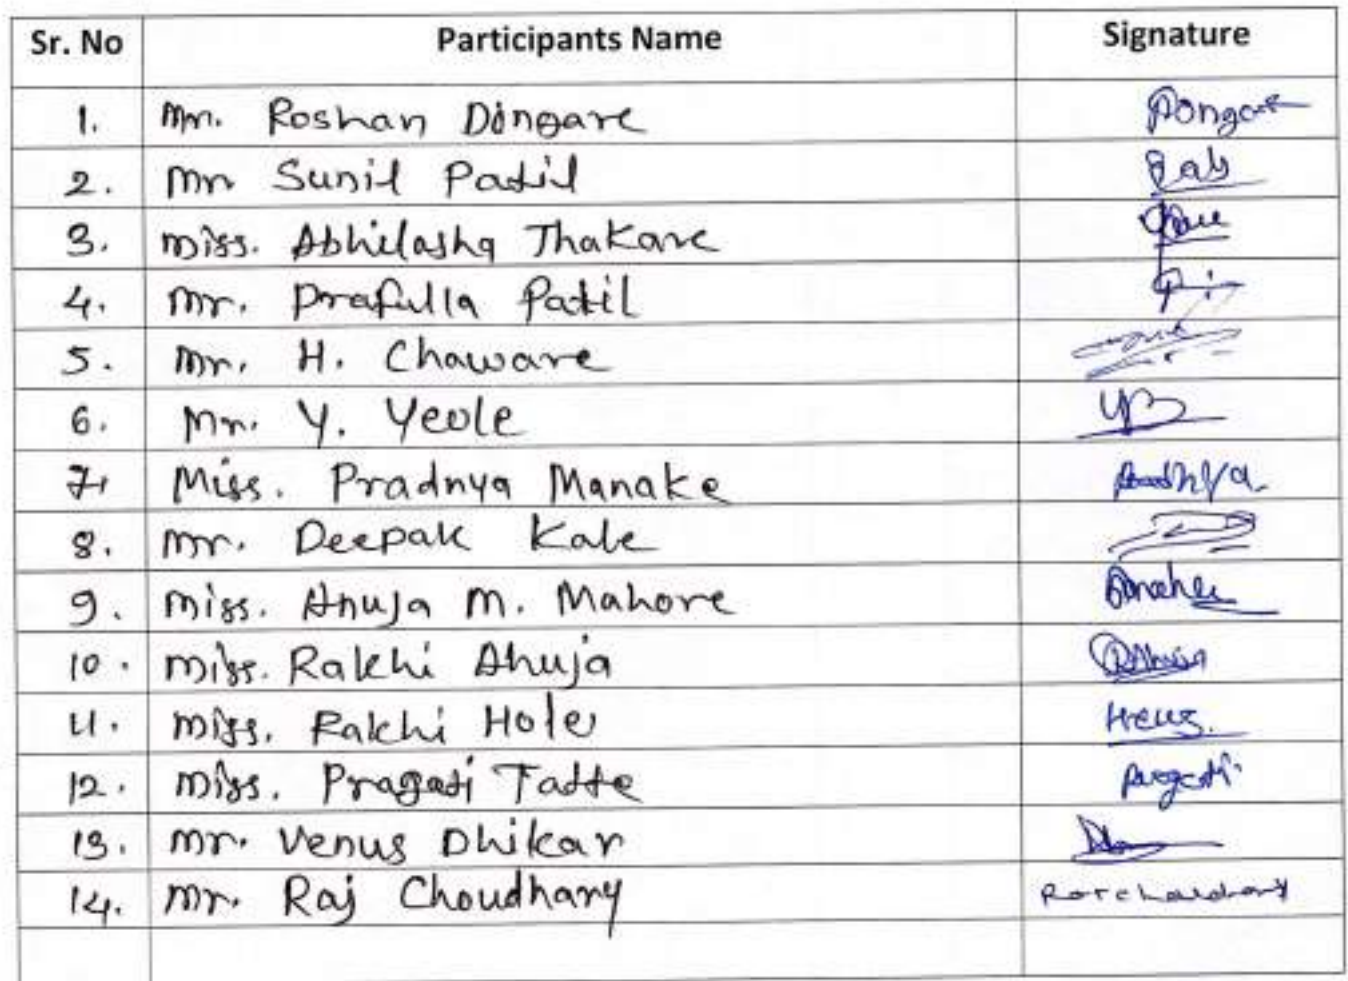 Sr. No Participants Name Signature
1. Mr. Roshan Dongare
2. Mr Sunil Patil
3. Miss. Abhilasha Thakare
4. Mr. Prafulla Patil
5. Mr. H. Chaware
6. Mr. Y. Yeole
7. Miss. Pradnya Manake
8. Mr. Deepak Kale
9. Miss. Anuja M. Mahore
10. Miss. Rakhi Ahuja
11. Miss. Rakhi Hole
12. Miss. Pragati Tatte Pragati
13. Mr. Venus Dhikar
14. Mr. Raj Choudhary